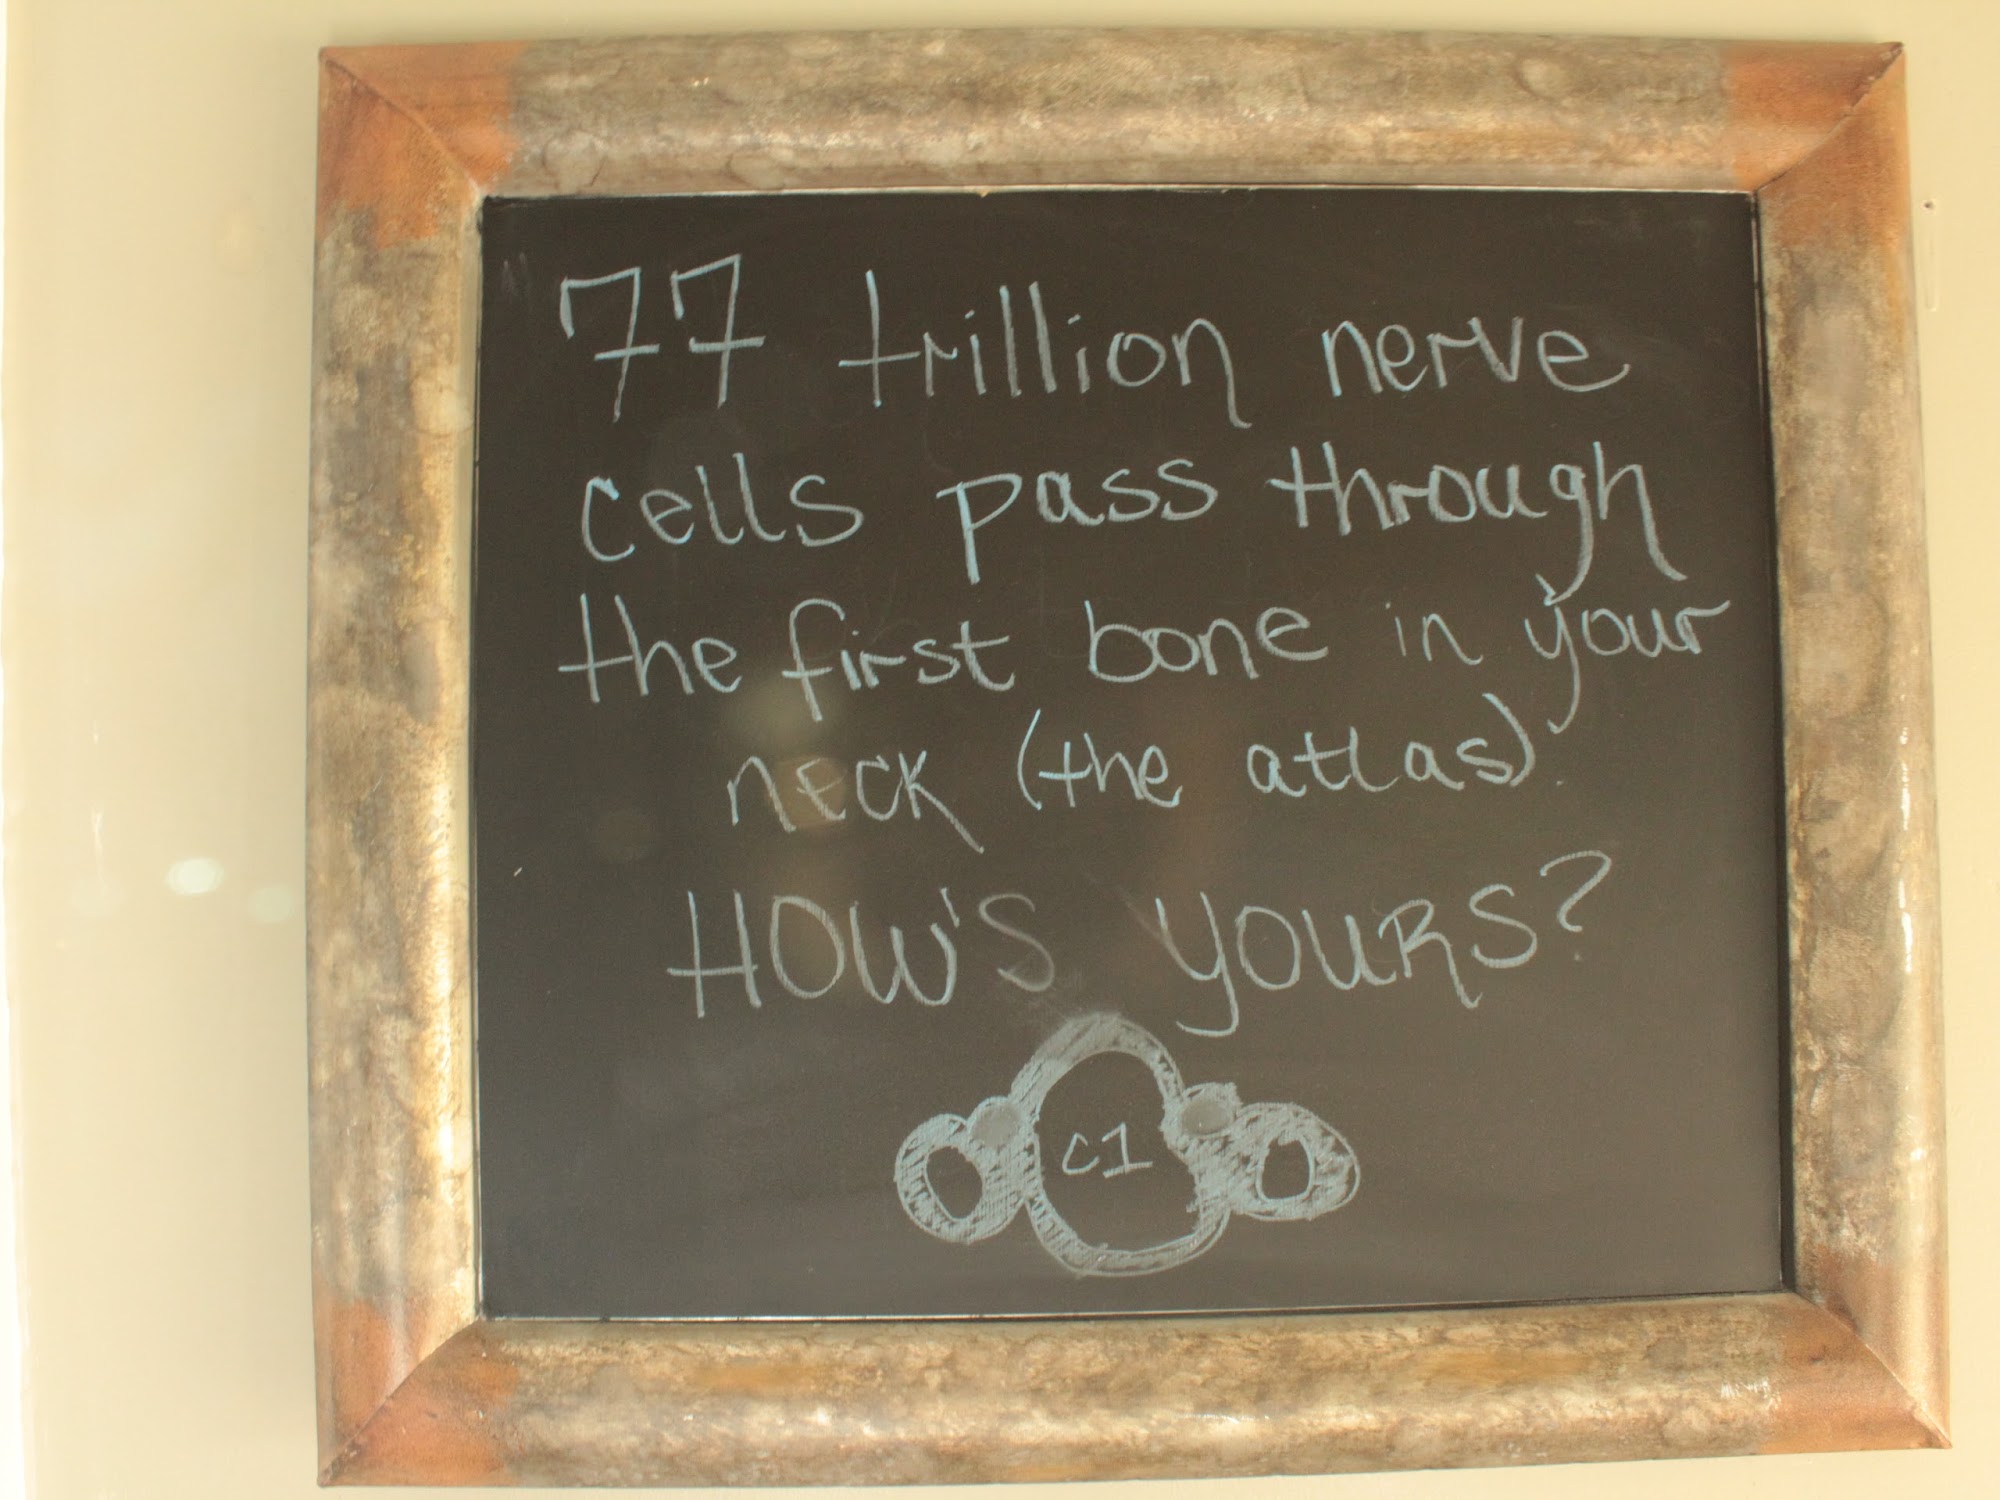 77 trillion nerve
cells pass through
the first bone in your
neck (the atlas).
HOW'S YOURS?
C1